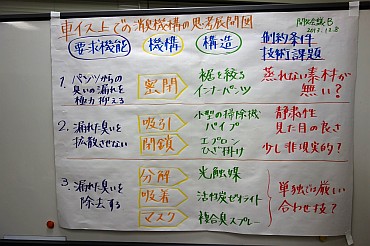 車イス上での消臭機構の思考展開図
開発会議B
2013.12.8
要求機能
機構
構造
制約条件
技術課題
1. パンツからの
臭いの漏れを
極力抑える
密閉
裾を絞る
インナーパンツ
蒸れない素材が
無い?
2. 漏れた臭いを
拡散させない
吸引
閉鎖
小型の掃除機
パイプ
エプロン
ひざ掛け
静粛性
見た目の良さ
少し非現実的?
3. 漏れた臭いを
除去する
分解
吸着
マスク
光触媒
活性炭ゼオライト
複合臭スプレー
単独では厳しい
合わせ技?